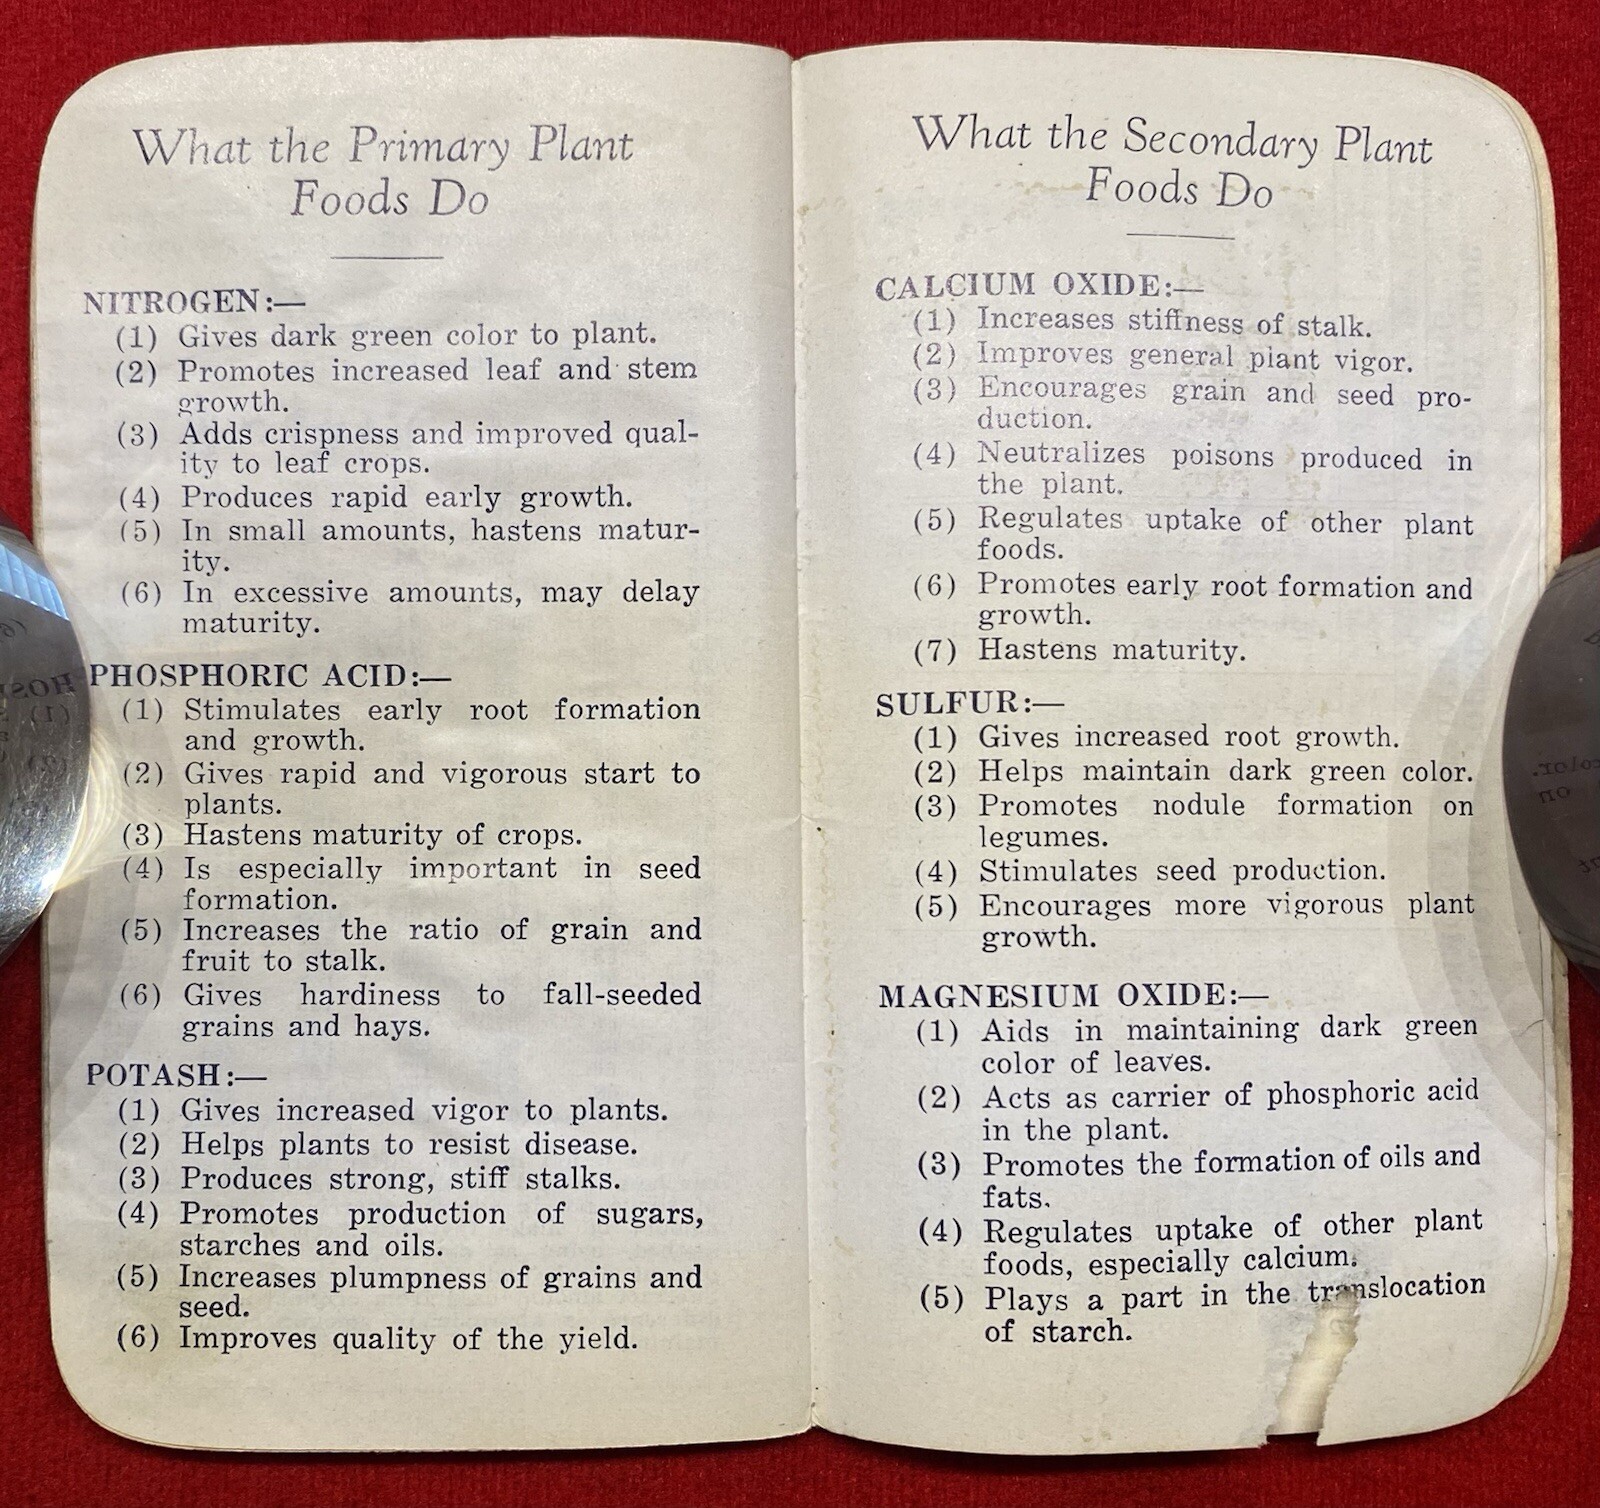 What the Primary Plant
Foods Do
NITROGEN:—
(1) Gives dark green color to plant.
(2) Promotes increased leaf and stem
growth.
(3) Adds crispness and improved qual-
ity to leaf crops.
(4) Produces rapid early growth.
(5) In small amounts, hastens matur-
ity.
(6) In excessive amounts, may delay
maturity.
PHOSPHORIC ACID:—
(1) Stimulates early root formation
and growth.
(2) Gives rapid and vigorous start to
plants.
(3) Hastens maturity of crops.
(4) Is especially important in seed
formation.
(5) Increases the ratio of grain and
fruit to stalk.
(6) Gives hardiness to fall-seeded
grains and hays.
POTASH:—
(1) Gives increased vigor to plants.
(2) Helps plants to resist disease.
(3) Produces strong, stiff stalks.
(4) Promotes production of sugars,
starches and oils.
(5) Increases plumpness of grains and
seed.
(6) Improves quality of the yield.
What the Secondary Plant
Foods Do
CALCIUM OXIDE:—
(1) Increases stiffness of stalk.
(2) Improves general plant vigor.
(3) Encourages grain and seed pro-
duction.
(4) Neutralizes poisons produced in
the plant.
(5) Regulates uptake of other plant
foods.
(6) Promotes early root formation and
growth.
(7) Hastens maturity.
SULFUR:—
(1) Gives increased root growth.
(2) Helps maintain dark green color.
(3) Promotes nodule formation on
legumes.
(4) Stimulates seed production.
(5) Encourages more vigorous plant
growth.
MAGNESIUM OXIDE:—
(1) Aids in maintaining dark green
color of leaves.
(2) Acts as carrier of phosphoric acid
in the plant.
(3) Promotes the formation of oils and
fats.
(4) Regulates uptake of other plant
foods, especially calcium.
(5) Plays a part in the translocation
of starch.